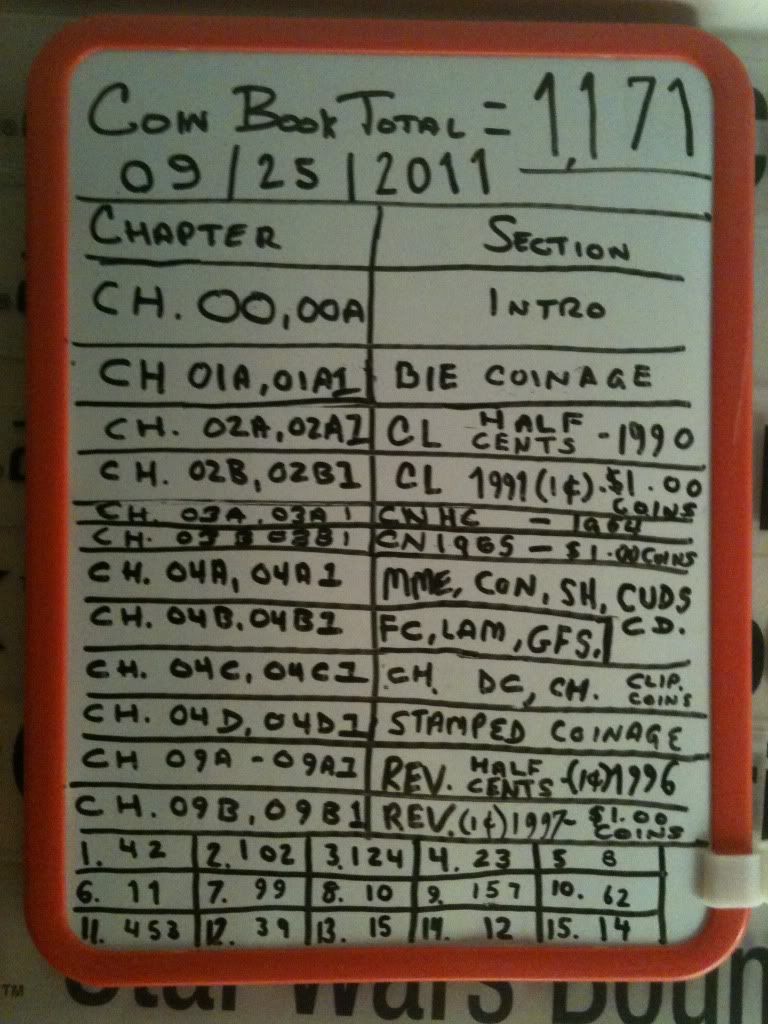 COIN BOOK TOTAL = 1,171
09/25/2011
CHAPTER SECTION
CH. 00,00A INTRO
CH 01A,01A1 BIE COINAGE
CH. 02A,02A1 CL HALF CENTS -1990
CH. 02B,02B1 CL 1991(1¢)-$1.00 COINS
CH. 03A,03A1 CNHC - 1964
CH. 03B 03B1 CN1965-$1.00COINS
CH. 04A, 04A1 MME, CON, SH, CUDS
CH. 04B,04B1 FC,LAM,GFS. CD.
CH. 04C,04C1 CH. DC, CH. CLIP. COINS
CH. 04D,04D1 STAMPED COINAGE
CH 09A -09A1 REV. HALF CENTS -(1¢)1996
CH.09B,09B1 REV.(1¢)1997- $1.00 COINS
1. 42 2. 102 3. 124 4. 23 5 8
6. 11 7. 99 8. 10 9. 157 10. 62
11. 453 12. 39 13. 15 14. 12 15. 14
TM Star Wars Boun